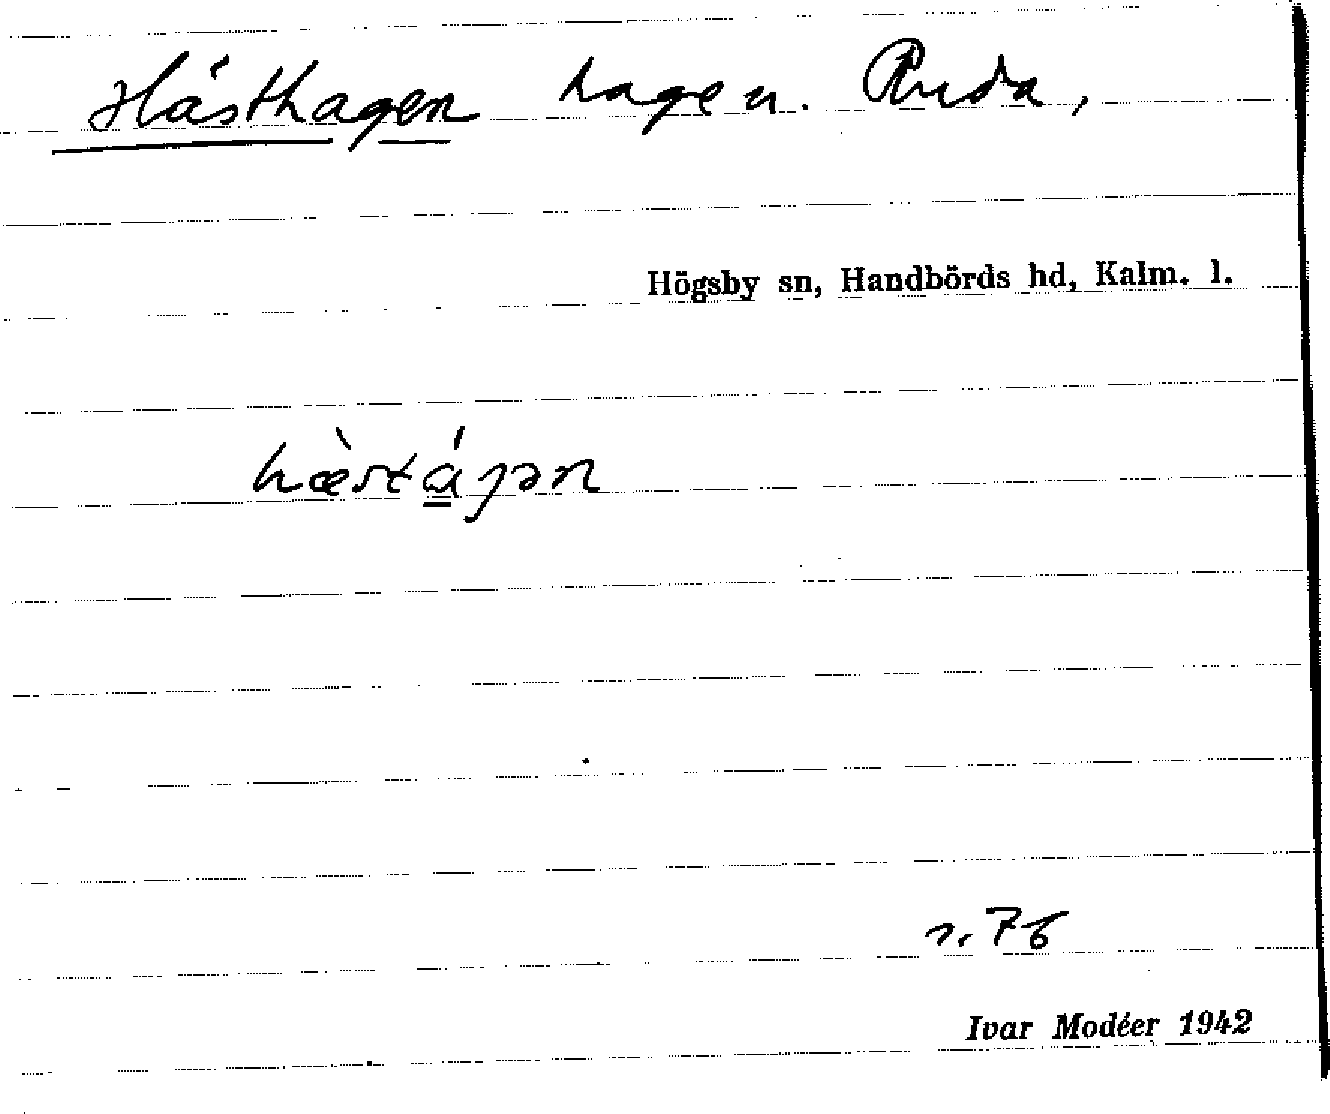 Hästhagen hagen. Ruda,
Högsby sn, Handbörds hd, Kalm. l.
hæ̀stɑ́jən
s. 76
Ivar Modéer 1942